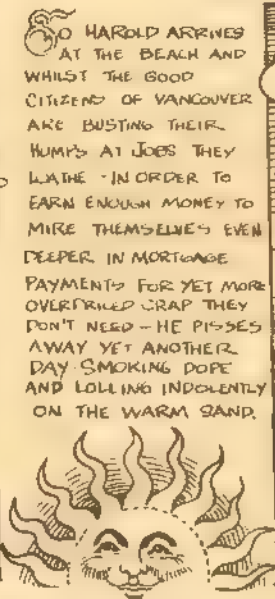 SO HAROLD ARRIVES
AT THE BEACH AND
WHILST THE GOOD
CITIZENS OF VANCOUVER
ARE BUSTING THEIR
HUMPS AT JOBS THEY
LOATHE - IN ORDER TO
EARN ENOUGH MONEY TO
MIRE THEMSELVES EVEN
DEEPER IN MORTGAGE
PAYMENTS FOR YET MORE
OVERPRICED CRAP THEY
DON'T NEED - HE PISSES
AWAY YET ANOTHER
DAY SMOKING DOPE
AND LOLLING INDOLENTLY
ON THE WARM SAND.